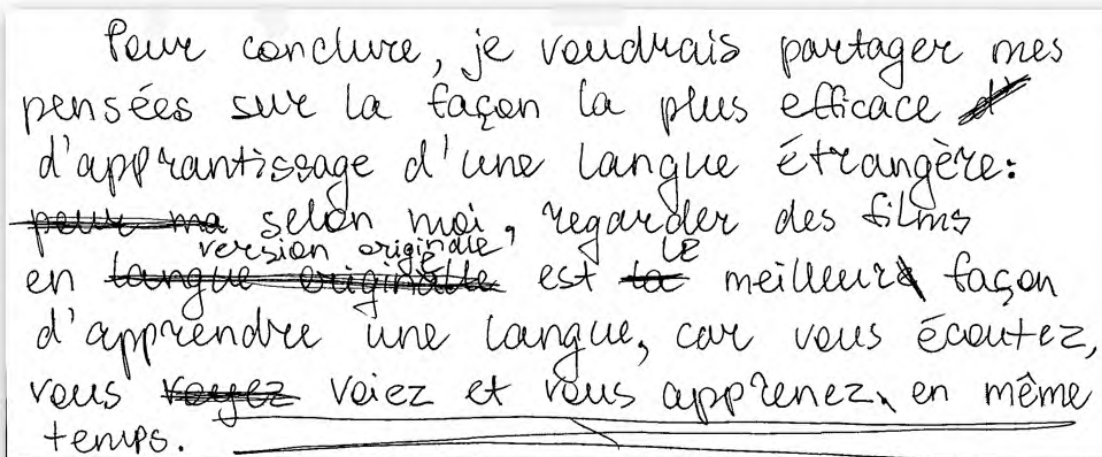 Pour conclure, je voudrais partager mes
pensées sur la façon la plus efficace d'
d'apprantissage d'une langue étrangère:
pour ma selon moi, regarder des films
version originale,
en langue originalle est la le meilleur façon
d'apprendre une langue, car vous écoutez,
vous voyez voiez et vous apprenez, en même
temps.